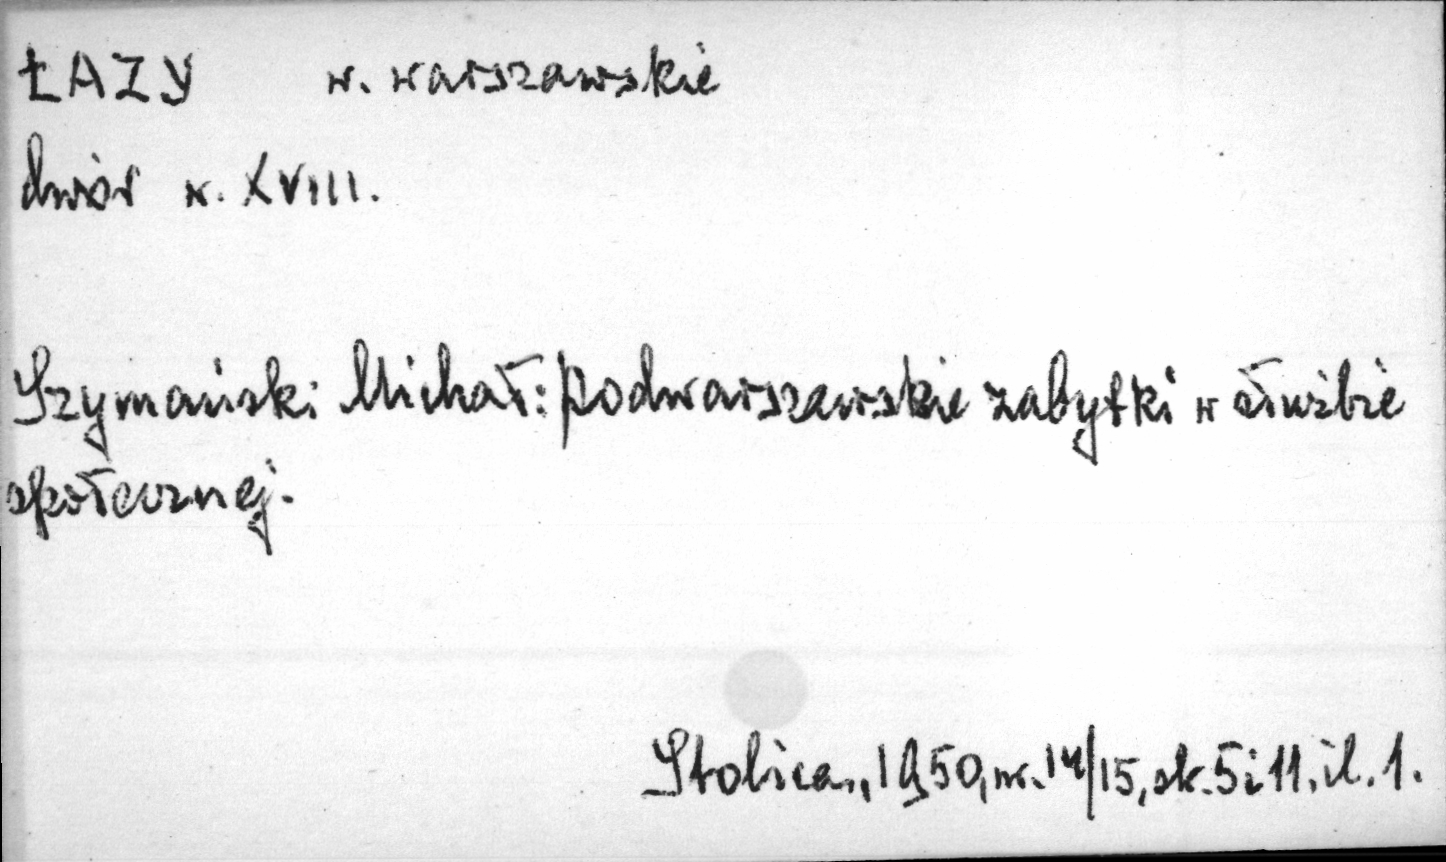 ŁAZY w. warszawskie
dwór w. XVIII.
Szymański Michał: Podwarszawskie zabytki w służbie
społecznej.
Stolica, 1950, nr. 14/15, sk. 5 i 11. il. 1.